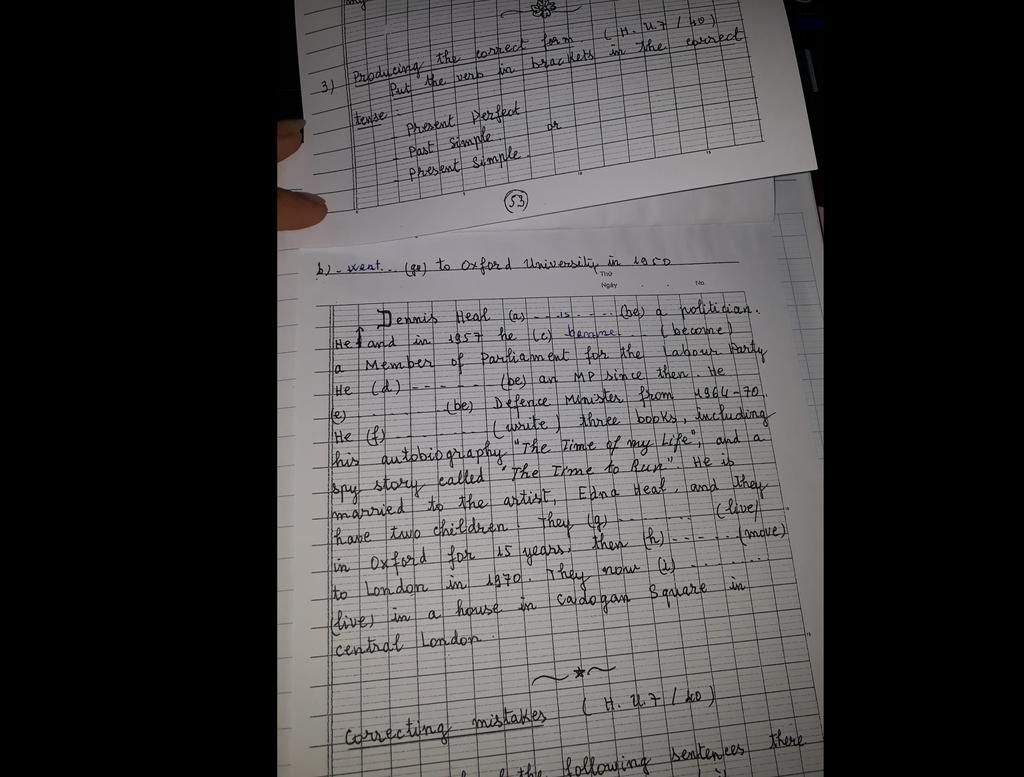 my
3) Producing the correct form (H.U.7/40)
Put the verb in brackets in the correct
tense :
- Present Perfect
- Past Simple or
- Present Simple.
53
b) - went... (go) to Oxford University in 1950
Thứ
Ngày . . No.
Dennis Heal (a) ....is...... (be) a politician.
He ↑ and in 1957 he (c) became.... (become)
a Member of Parliament for the Labour Party
He (d) ------- (be) an MP since then. He
(e) ............ (be) Defence Minister from 1964-70.
He (f) ............ (write) three books, including
his autobiography "The Time of my Life", and a
spy story called "The Time to Run". He is
married to the artist, Edna Heal, and they
have two children. They (g) .......... (live)
in Oxford for 15 years, then (h) ---..... (move)
to London in 1970. They now (i) ..........
(live) in a house in Cadogan Square in
central London.
Correcting mistakes (H.U.7/40)
the following sentences there